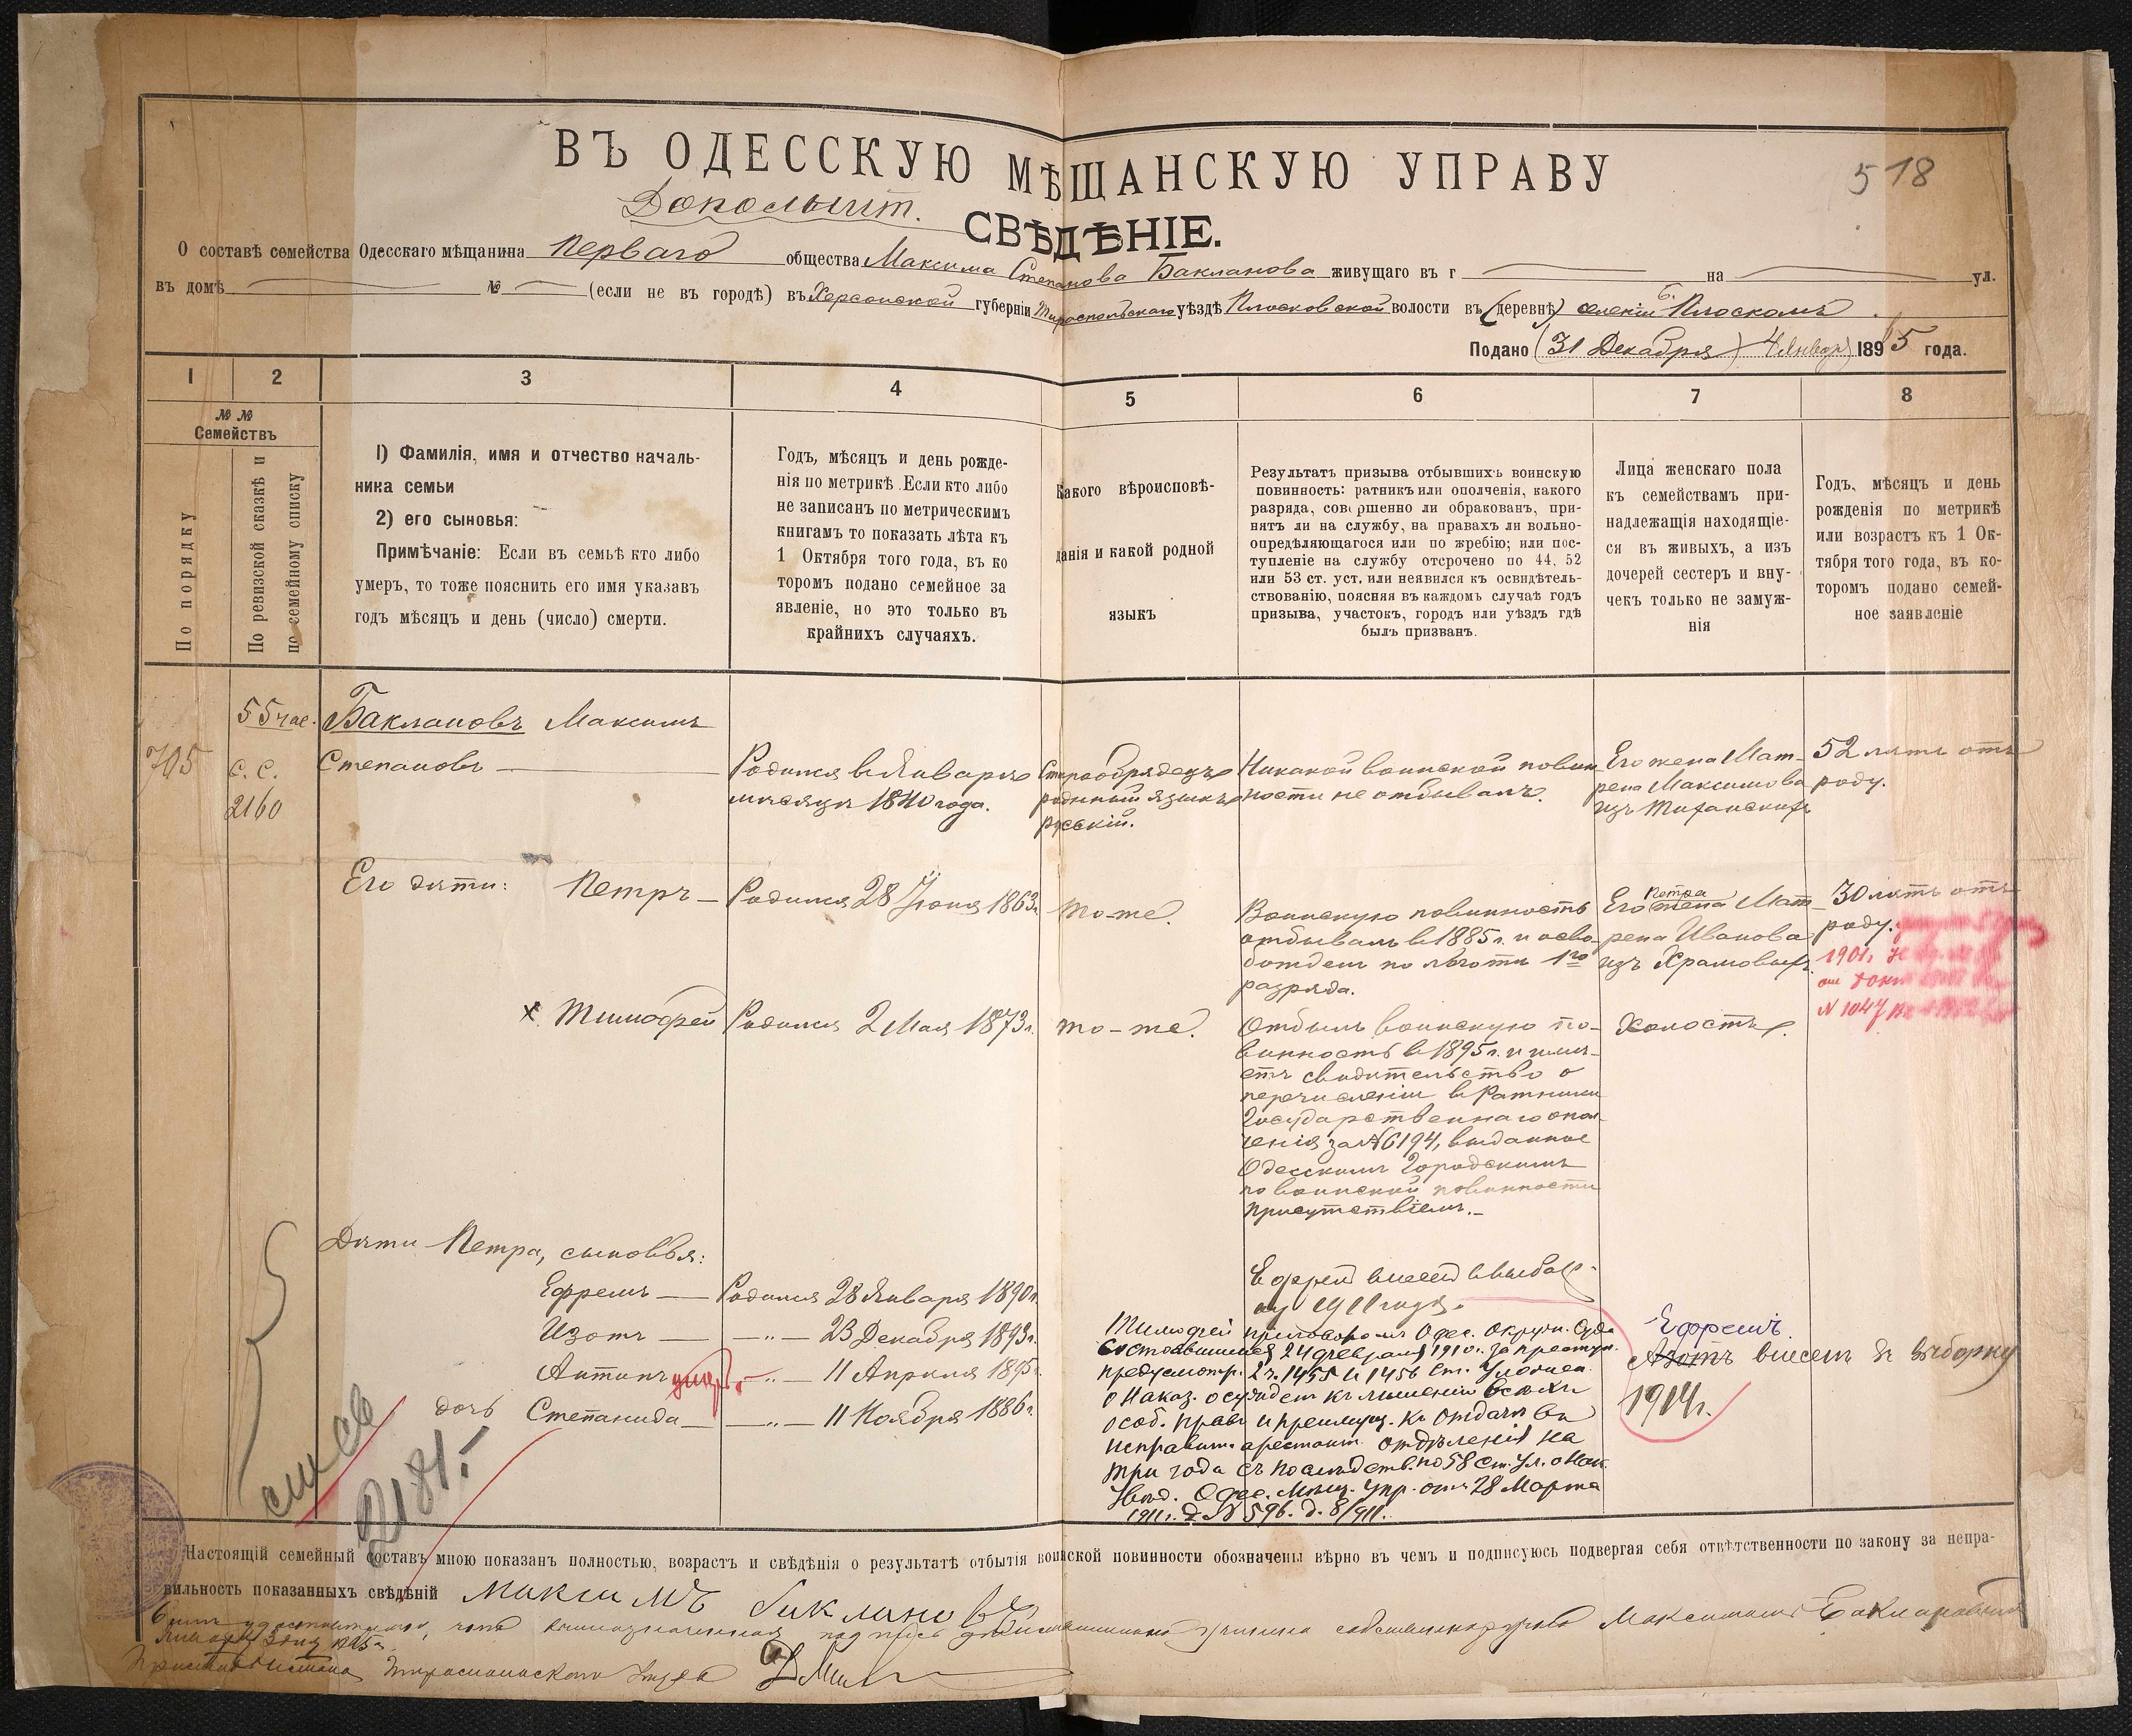 ВЪ ОДЕССКУЮ МѢЩАНСКУЮ УПРАВУ
518
СВѢДѢНІЕ.
О составѣ семейства Одесскаго мѣщанина Перваго общества Максима Степанова Бакланова живущаго въ г на ул.
въ домѣ № (если не въ городѣ) въ Херсонской губерніи Тираспольскаго уѣздѣ Плосковской волости въ (деревнѣ) селеніи Плоскомъ
Подано (31 Декабря) 4 Января 1895 года.
1 2 3 4 5 6 7 8
№ №
Семействъ
По порядку
По ревизской сказкѣ и
по семейному списку
1) Фамилія, имя и отчество началь-
ника семьи
2) его сыновья:
Примѣчаніе: Если въ семьѣ кто либо
умеръ, то тоже пояснить его имя указавъ
годъ мѣсяцъ и день (число) смерти.
Годъ, мѣсяцъ и день рожде-
нія по метрикѣ. Если кто либо
не записанъ по метрическимъ
книгамъ то показать лѣта къ
1 Октября того года, въ ко
торомъ подано семейное за
явленіе, но это только въ
крайнихъ случаяхъ.
Какого вѣроисповѣ-
данія и какой родной
языкъ
Результатъ призыва отбывшихъ воинскую
повинность: ратникъ или ополченія, какого
разряда, совершенно ли обракованъ, при-
нятъ ли на службу, на правахъ ли вольно-
опредѣляющагося или по жребію; или пос-
тупленіе на службу отсрочено по 44, 52
или 53 ст. уст. или неявился къ освидѣтель-
ствованію, поясняя въ каждомъ случаѣ годъ
призыва, участокъ, городъ или уѣздъ гдѣ
былъ призванъ.
Лица женскаго пола
къ семействамъ при-
надлежащія находящіе-
ся въ живыхъ, а изъ
дочерей сестеръ и вну-
чекъ только не замуж-
нія
Годъ, мѣсяцъ и день
рожденія по метрикѣ
или возрастъ къ 1 Ок-
тября того года, въ ко-
торомъ подано семей-
ное заявленіе
705
с. с.
2160
Баклановъ Максимъ
Степановъ
Родился въ Январѣ
мѣсяцѣ 1840 года.
Старообрядецъ
родный языкъ
русскій.
Никакой воинской повин-
ности не отбывалъ.
Его жена Мат-
рена Максимова
изъ
52 лѣтъ отъ
роду.
Его дѣти: Петръ — Родился 28 Іюня 1863г.
то-же.
Воинскую повинность
отбывалъ въ 1885г. и осво-
божденъ по льготѣ 1го
разряда.
Петра
Его жена Мат
рена Иванова
изъ Храмовыхъ.
30 лѣтъ отъ
роду.
1901г.
N 1047
х. Тимофей Родился 2 Мая 1873г.
то-же.
Отбылъ воинскую по-
винность въ 1895г. и имѣ-
етъ свидѣтельство о
перечисленіи въ Ратники
Государственнаго опол-
ченія за № 6194, выданное
Одесскимъ Городскимъ
по воинской повинности
присутствіемъ.—
Холостъ.
Дѣти Петра, сыновья:
Ефремъ — Родился 28 Января 1890г.
Изотъ — —"— 23 Декабря 1893г.
Антипъ умеръ —"— 11 Апрѣля 1895г.
дочь Степанида — —"— 11 Ноября 1886г.
Ефрем внесен в выбор-
ку 1911 года.
Тимофей приговоромъ Одес. Окружн. Суда
состоявшимся 24 февраля 1910г. за преступ.
предусмотр. 2 ч. 1455 и 1456 ст. Уложен.
о Наказ. осужденъ къ лишенію всѣхъ
особ. правъ и преимущ. къ отдачѣ въ
исправит. арестант. отдѣленія на
три года съ послѣдств. по 58 ст. Ул. о Нак.
Увѣд. Одес. Мѣщ. Упр. отъ 28 Марта
1911г. № 596. д. 8/911.
Ефремъ.
Изотъ внесенъ въ выборку
1914г.
2181.
Настоящій семейный составъ мною показанъ полностью, возрастъ и свѣдѣнія о результатѣ отбытія воинской повинности обозначены вѣрно въ чемъ и подписуюсь подвергая себя отвѣтственности по закону за непра-
вильность показанныхъ свѣдѣній Максимъ Бакланов
симъ удостовѣряю, что вышеозначенная подпись дѣйствительно учинена собственноручно Максимомъ Баклановымъ
Января 3 дня 1895г.
Приставъ Тираспольскаго уѣзда